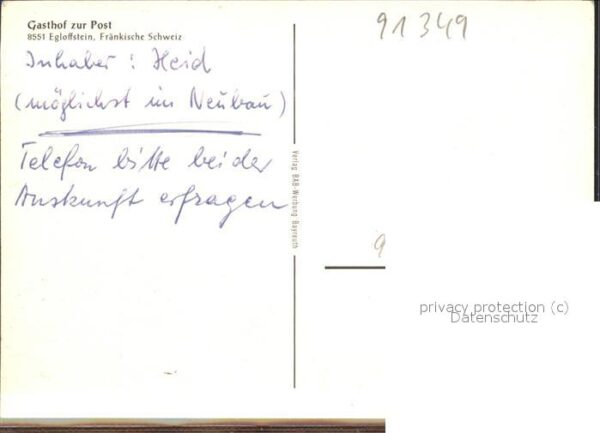 Gasthof zur Post
8551 Egloffstein, Fränkische Schweiz
Inhaber : Heid
(möglichst im Neubau)
Telefon bitte bei der
Auskunft erfragen
Verlag BAB-Werbung Bayreuth
91 349
9
privacy protection (c)
Datenschutz